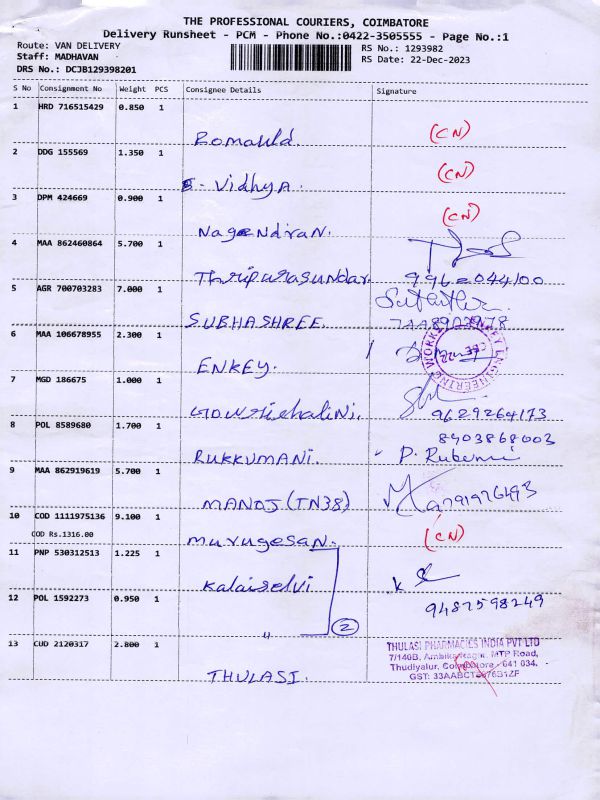 THE PROFESSIONAL COURIERS, COIMBATORE
Delivery Runsheet - PCM - Phone No.:0422-3505555 - Page No.:1
Route: VAN DELIVERY
Staff: MADHAVAN
DRS No.: DCJB129398201
RS No.: 1293982
RS Date: 22-Dec-2023
S No Consignment No Weight PCS Consignee Details Signature
1 HRD 716515429 0.850 1
Romauld (CN)
2 DDG 155569 1.350 1
S-Vidhya. (CN)
3 DPM 424669 0.900 1
Nagendiran. (CN)
4 MAA 862460864 5.700 1
Thripurasundar. 9962044100
5 AGR 700703283 7.000 1
SUBHASHREE.
6 MAA 106678955 2.300 1
ENKEY.
7 MGD 186675 1.000 1
Gowrishalini. 9629264173
8 POL 8589680 1.700 1
8903868003
RUKKUMANI.
9 MAA 862919619 5.700 1
MANOJ (TN38)
10 COD 1111975136 9.100 1
COD Rs.1316.00
Murugesan. (CN)
11 PNP 530312513 1.225 1
Kalaiselvi
12 POL 1592273 0.950 1
9487598249
" 2
13 CUD 2120317 2.800 1
THULASI.
THULASI PHARMACIES INDIA PVT LTD
7/140B, Ambika Nagar, MTP Road,
Thudiyalur, Coimbatore - 641 034.